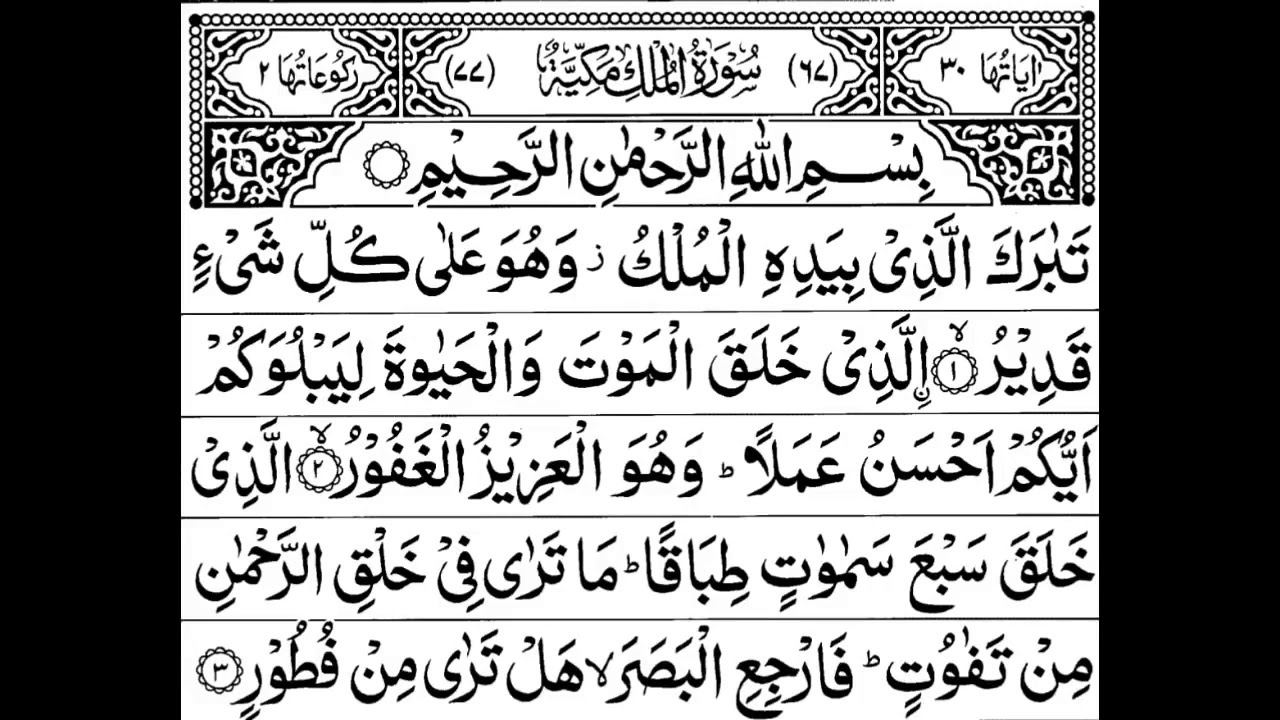 اٰيَاتُهَا ٣٠ (٦٧) سُوْرَةُ الْمُلْكِ مَكِّيَّةٌ (٧٧) رُكُوْعَاتُهَا ٢
بِسْمِ اللّٰهِ الرَّحْمٰنِ الرَّحِيْمِ
تَبٰرَكَ الَّذِیْ بِيَدِهِ الْمُلْكُ ز وَهُوَ عَلٰى كُلِّ شَیْءٍ
قَدِيْرُ ۙ﴿١﴾ نِ الَّذِیْ خَلَقَ الْمَوْتَ وَالْحَيٰوةَ لِيَبْلُوَكُمْ
اَيُّكُمْ اَحْسَنُ عَمَلًا ؕ وَهُوَ الْعَزِيْزُ الْغَفُوْرُ ۙ﴿٢﴾ الَّذِیْ
خَلَقَ سَبْعَ سَمٰوٰتٍ طِبَاقًا ؕ مَا تَرٰى فِیْ خَلْقِ الرَّحْمٰنِ
مِنْ تَفٰوُتٍ ؕ فَارْجِعِ الْبَصَرَ ۙ هَلْ تَرٰى مِنْ فُطُوْرٍ ﴿٣﴾